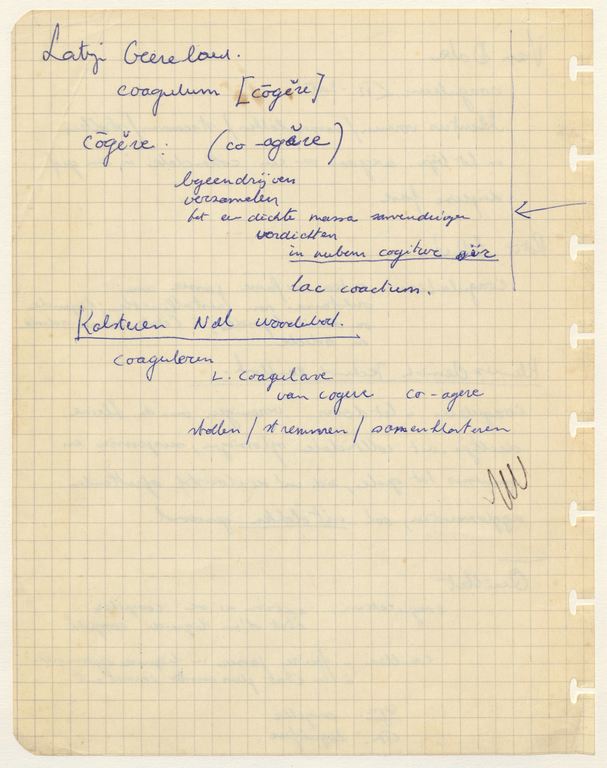 Latijn Geerebaert.
coagulum [cōgĕre]
cōgĕre: (co-agĕre)
bijeendrijven
verzamelen
tot een dichte massa samendringen
verdichten
in nubem cogitur aër
lac coactum.
Kolsteren Ndl woordenb.
coaguleren
L. coagulare
van cogere co-agere
stollen / stremmen / samenklonteren